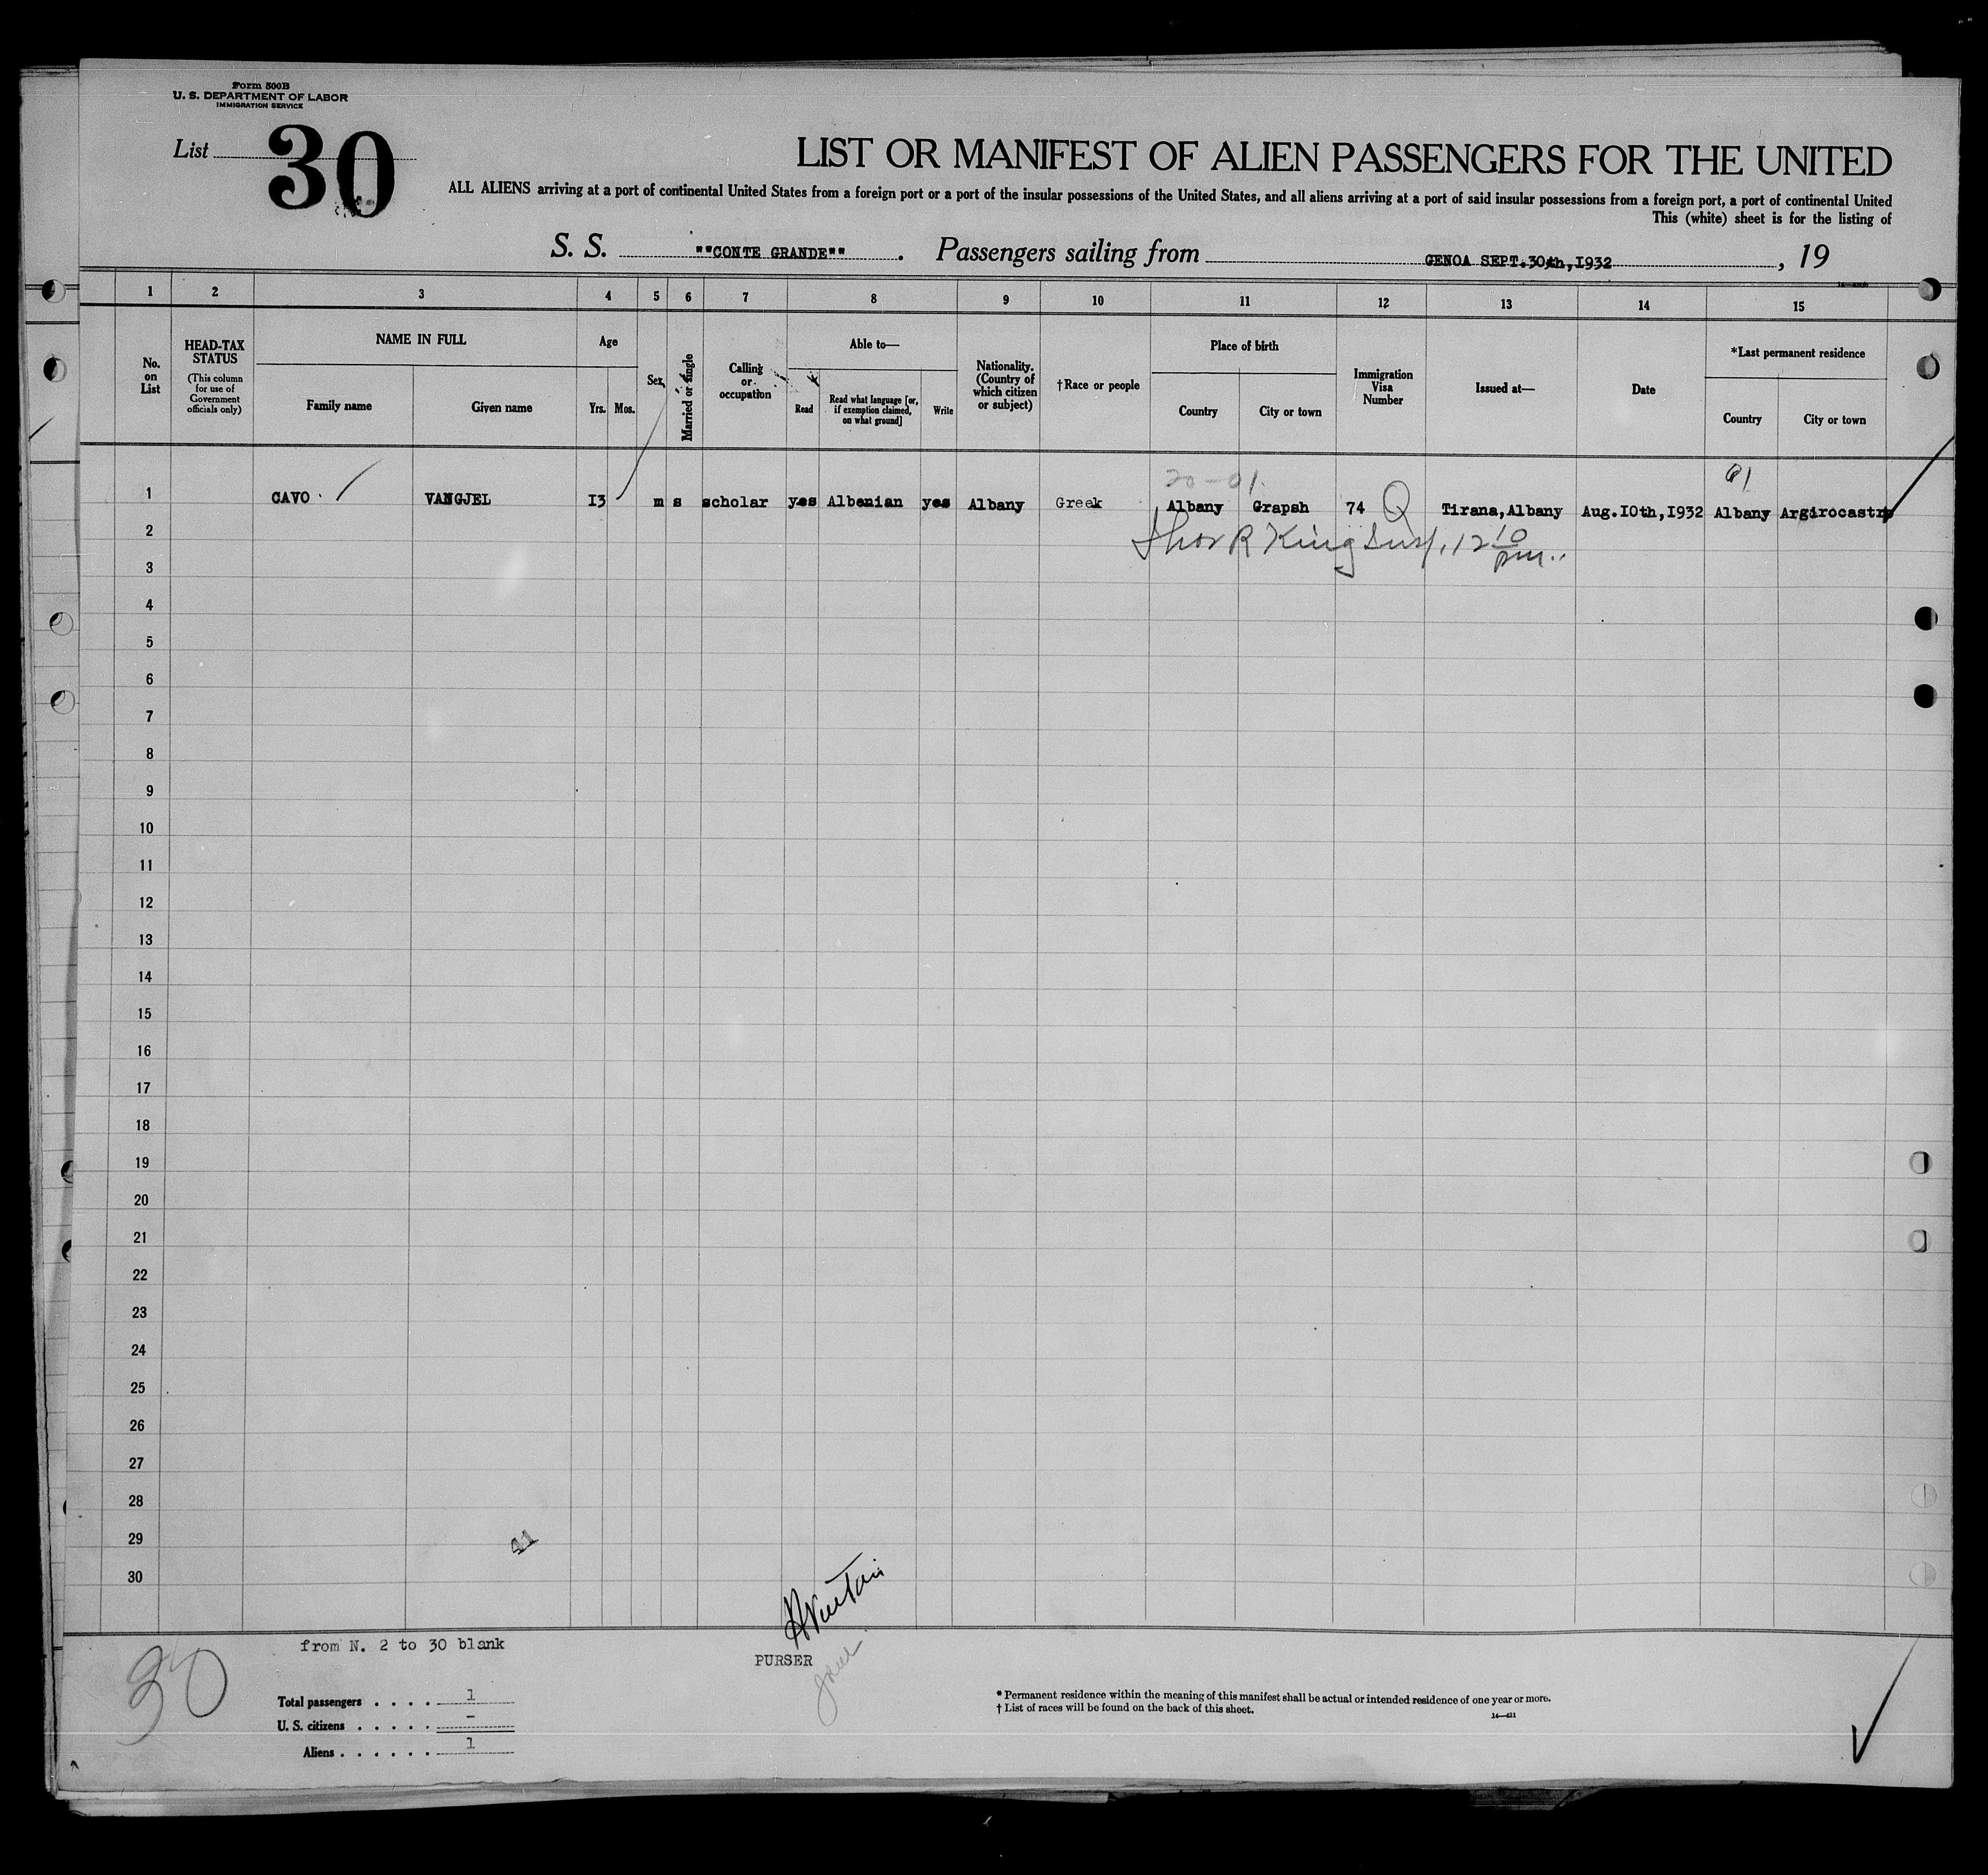 Form 500B
U. S. DEPARTMENT OF LABOR
IMMIGRATION SERVICE
List 30
LIST OR MANIFEST OF ALIEN PASSENGERS FOR THE UNITED
ALL ALIENS arriving at a port of continental United States from a foreign port or a port of the insular possessions of the United States, and all aliens arriving at a port of said insular possessions from a foreign port, a port of continental United
This (white) sheet is for the listing of
S. S. "CONTE GRANDE" . Passengers sailing from GENOA SEPT.30th,I932 , 19
1 2 3 4 5 6 7 8 9 10 11 12 13 14 15
No. on List
HEAD-TAX STATUS
(This column for use of Government officials only)
NAME IN FULL
Family name
Given name
Age
Yrs. Mos.
Sex
Married or single
Calling or occupation
Able to—
Read
Read what language [or, if exemption claimed, on what ground]
Write
Nationality. (Country of which citizen or subject)
†Race or people
Place of birth
Country
City or town
Immigration Visa Number
Issued at—
Date
*Last permanent residence
Country
City or town
20-01. 01
1 CAVO VANGJEL I3 m s scholar yes Albanian yes Albany Greek Albany Grapsh 74 Q Tirana,Albany Aug.I0th,I932 Albany Argirocastro
R King 12 10 pm.
2
3
4
5
6
7
8
9
10
11
12
13
14
15
16
17
18
19
20
21
22
23
24
25
26
27
28
29
30
from N. 2 to 30 blank
PURSER
30
Total passengers . . . . 1
U. S. citizens . . . . . -
Aliens . . . . . . 1
* Permanent residence within the meaning of this manifest shall be actual or intended residence of one year or more.
† List of races will be found on the back of this sheet.